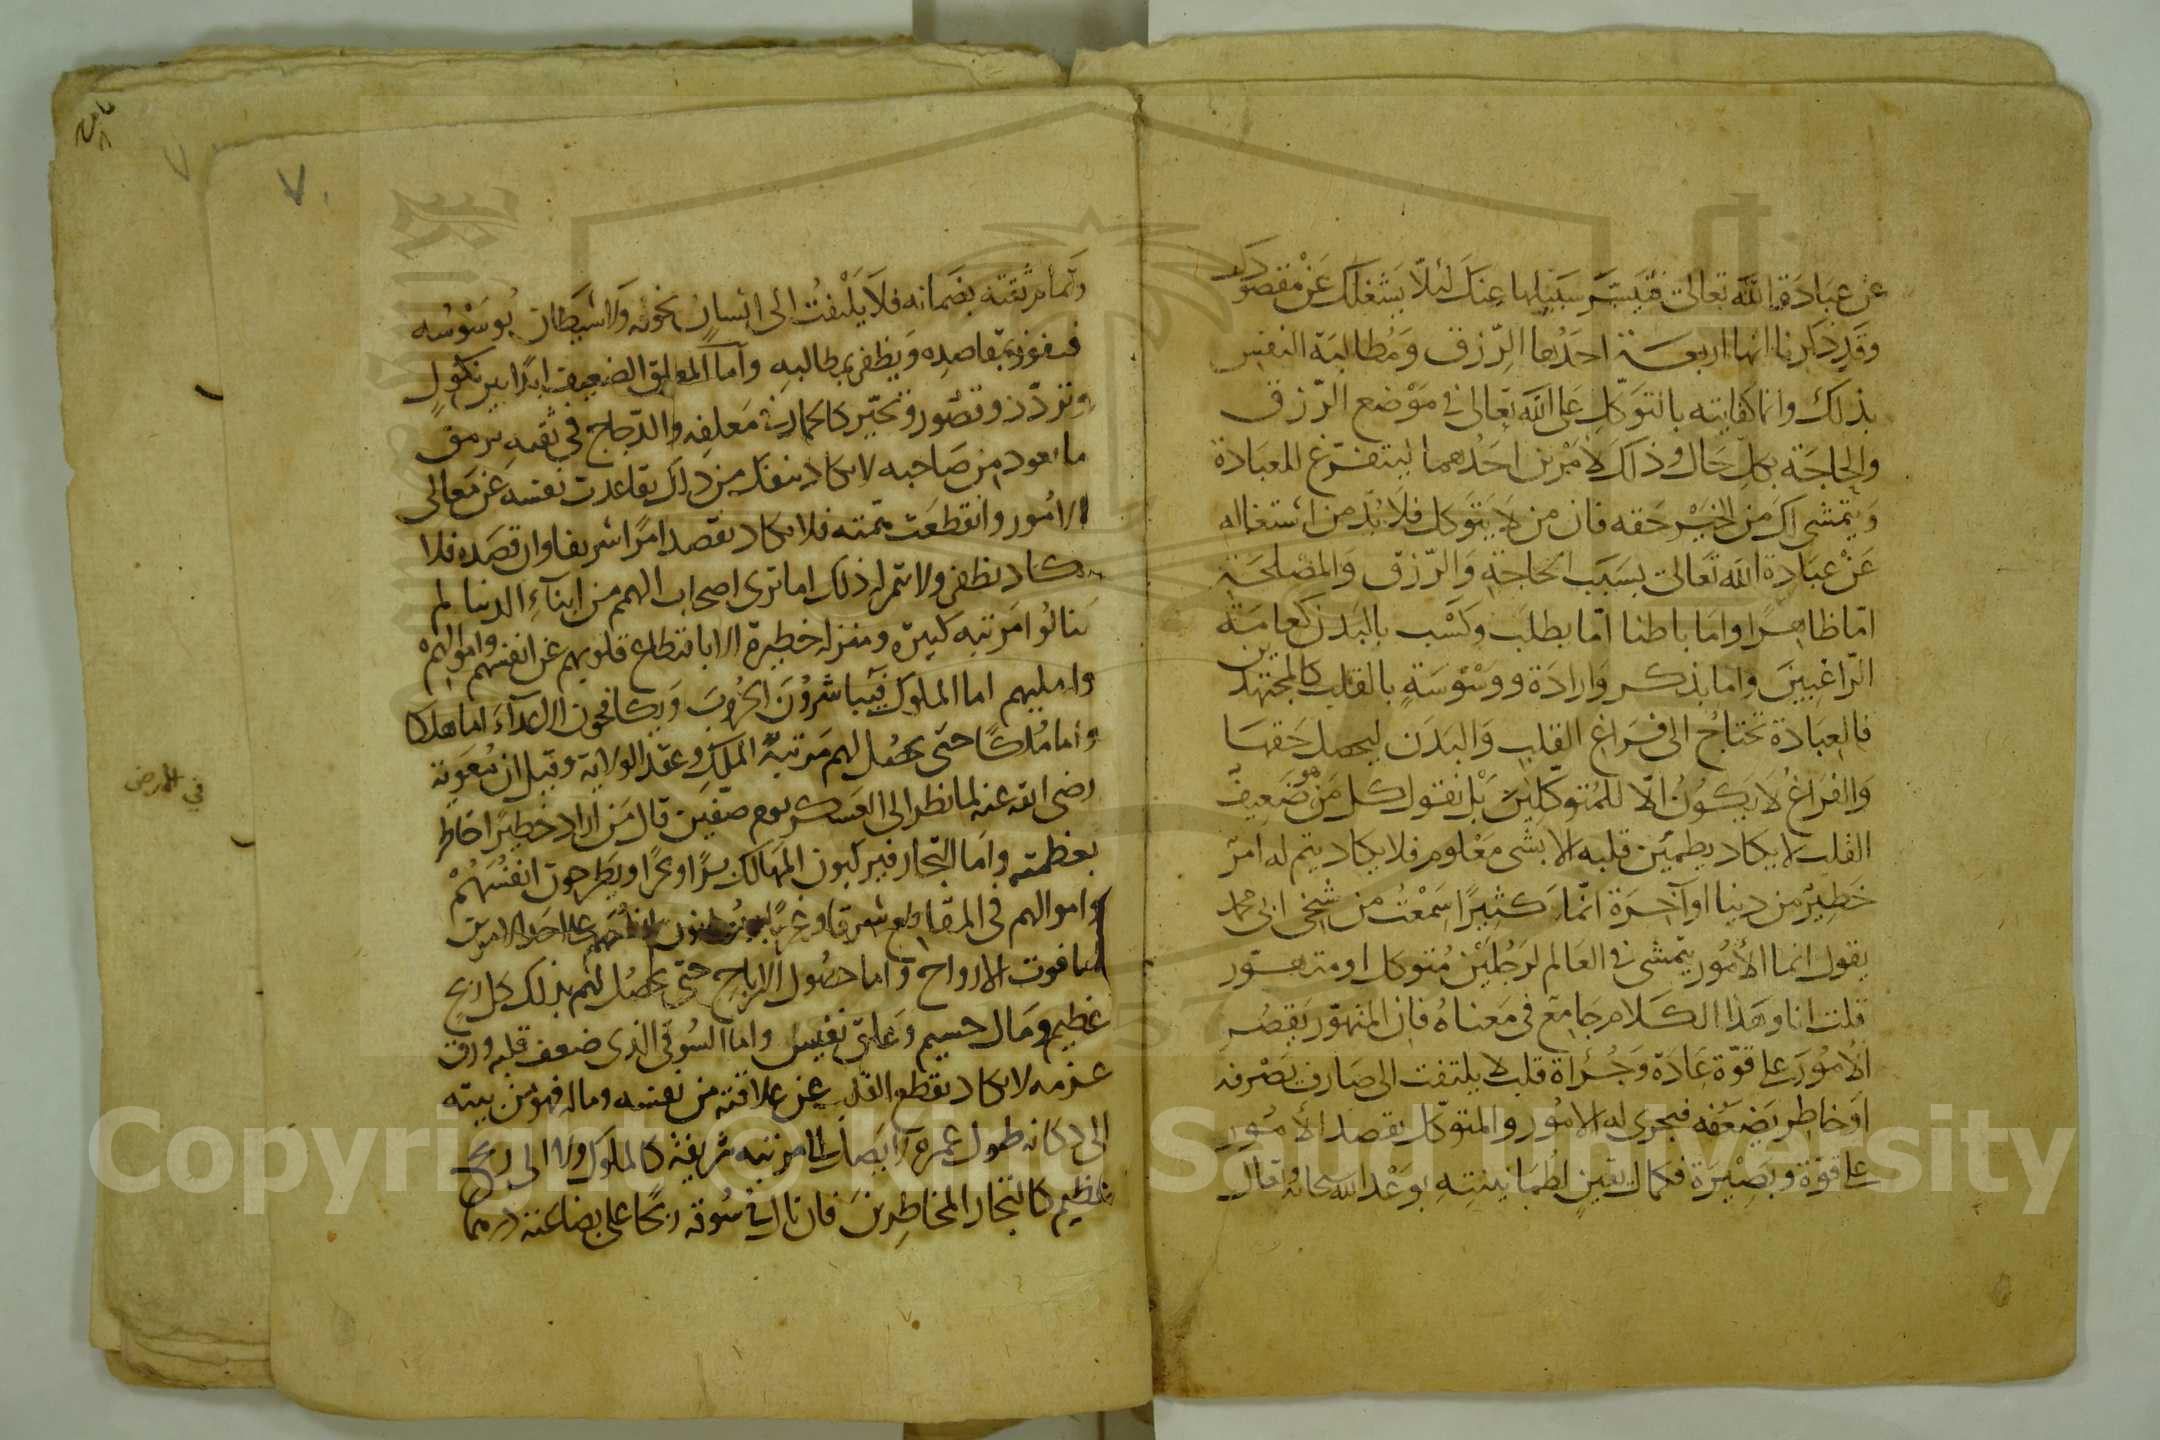 عن عبادة الله تعالى فتيسر سبيلها عنك لئلا يشغلك عن مقصودك
وقد ذكرنا انها اربعة احدها الرزق ومطالبة النفس
بذلك وانما كفايته بالتوكل على الله تعالى في موضع الرزق
والحاجة بكل حال وذلك لامرين احدهما ليتفرغ للعبادة
ويتمشى لك من الخير حقه فان من لا يتوكل فلا بد من اشتغاله
عن عبادة الله تعالى بسبب الحاجة والرزق والمصلحة
اما ظاهرا واما باطنا اما بطلب وكسب بالبدن كعامة
الراغبين واما بذكر وارادة ووسوسة بالقلب كالمجتهدين
فالعبادة تحتاج الى فراغ القلب والبدن ليحصل حقها
والفراغ لا يكون الا للمتوكلين بل نقول كل من هو ضعيف
القلب لا يكاد يطمئن قلبه الا بشى معلوم فلا يكاد يتم له امر
خطير من دينا او آخرة انما كثيرا سمعت من شيخي ابى محمد
يقول انما الأمور يتمشى في العالم لرجلين متوكل او متهور
قلت انا وهذا الكلام جامع في معناه فان المتهور يقصد
الامور على قوة عادة وجرأة قلب لا يلتفت الى صارف تصرفه
او خاطر يضعفه فيجرى له الامور والمتوكل يقصد الأمور
على قوة وبصيرة فكمال يقين لطمانينته بوعد الله سبحانه تعالى
وتمام ثقته بضمانه فلا يلتفت الى انسان يخوفه ولا شيطان يوسوسه
فيفوز بمقاصده ويظفر بمطالبه واما المعلق الضعيف ابدا بين نكول
وتردد وقصور وتحير كالحمار في معلفه والدجاج في ثقبه يرمق
ما يعود من صاحبه لا يكاد ينفك من ذلك تقاعدت نفسه عن معالى
الامور وانقطعت همته فلا يكاد يقصد امرا شريفا وان قصده فلا
يكاد يظفر ولا تتم له ذلك اما ترى اصحاب الهمم من ابناء الدنيا لم
ينالوا مرتبه كبيرة ومنزله خطيرة الا بانقطاع قلوبهم عن انفسهم واموالهم
واهليهم اما الملوك فيباشرون الحروب ويكافحون الاعداء اما هلكا
واما ملكا حتى يحصل لهم مرتبة الملك وعقد الولاية وقيل ان معوية
رضى الله عنه لما نظر الى العسكر يوم صفين قال من اراد خطيرا خاطر
بعظمته واما التجار فيركبون المهالك برا وبحرا ويطرحون انفسهم
واموالهم في المقاطع شرقا وغربا على احد الامرين
اما فوت الارواح واما حصول الارباح حتى يحصل لهم بذلك كل ربح
عظيم ومال جسيم وعلق نفيس واما السوقى الذى ضعف قلبه ورق
عزمه لا يكاد يقطع القلب عن علاقته من نفسه وماله فهو من بيته
الى دكانه طول عمره لا يصل الى مرتبه شريفة كالملوك ولا الى ربح
عظيم كالتجار المخاطرين فان نال في سوقه ربحا على بضاعته درهما
في المرض